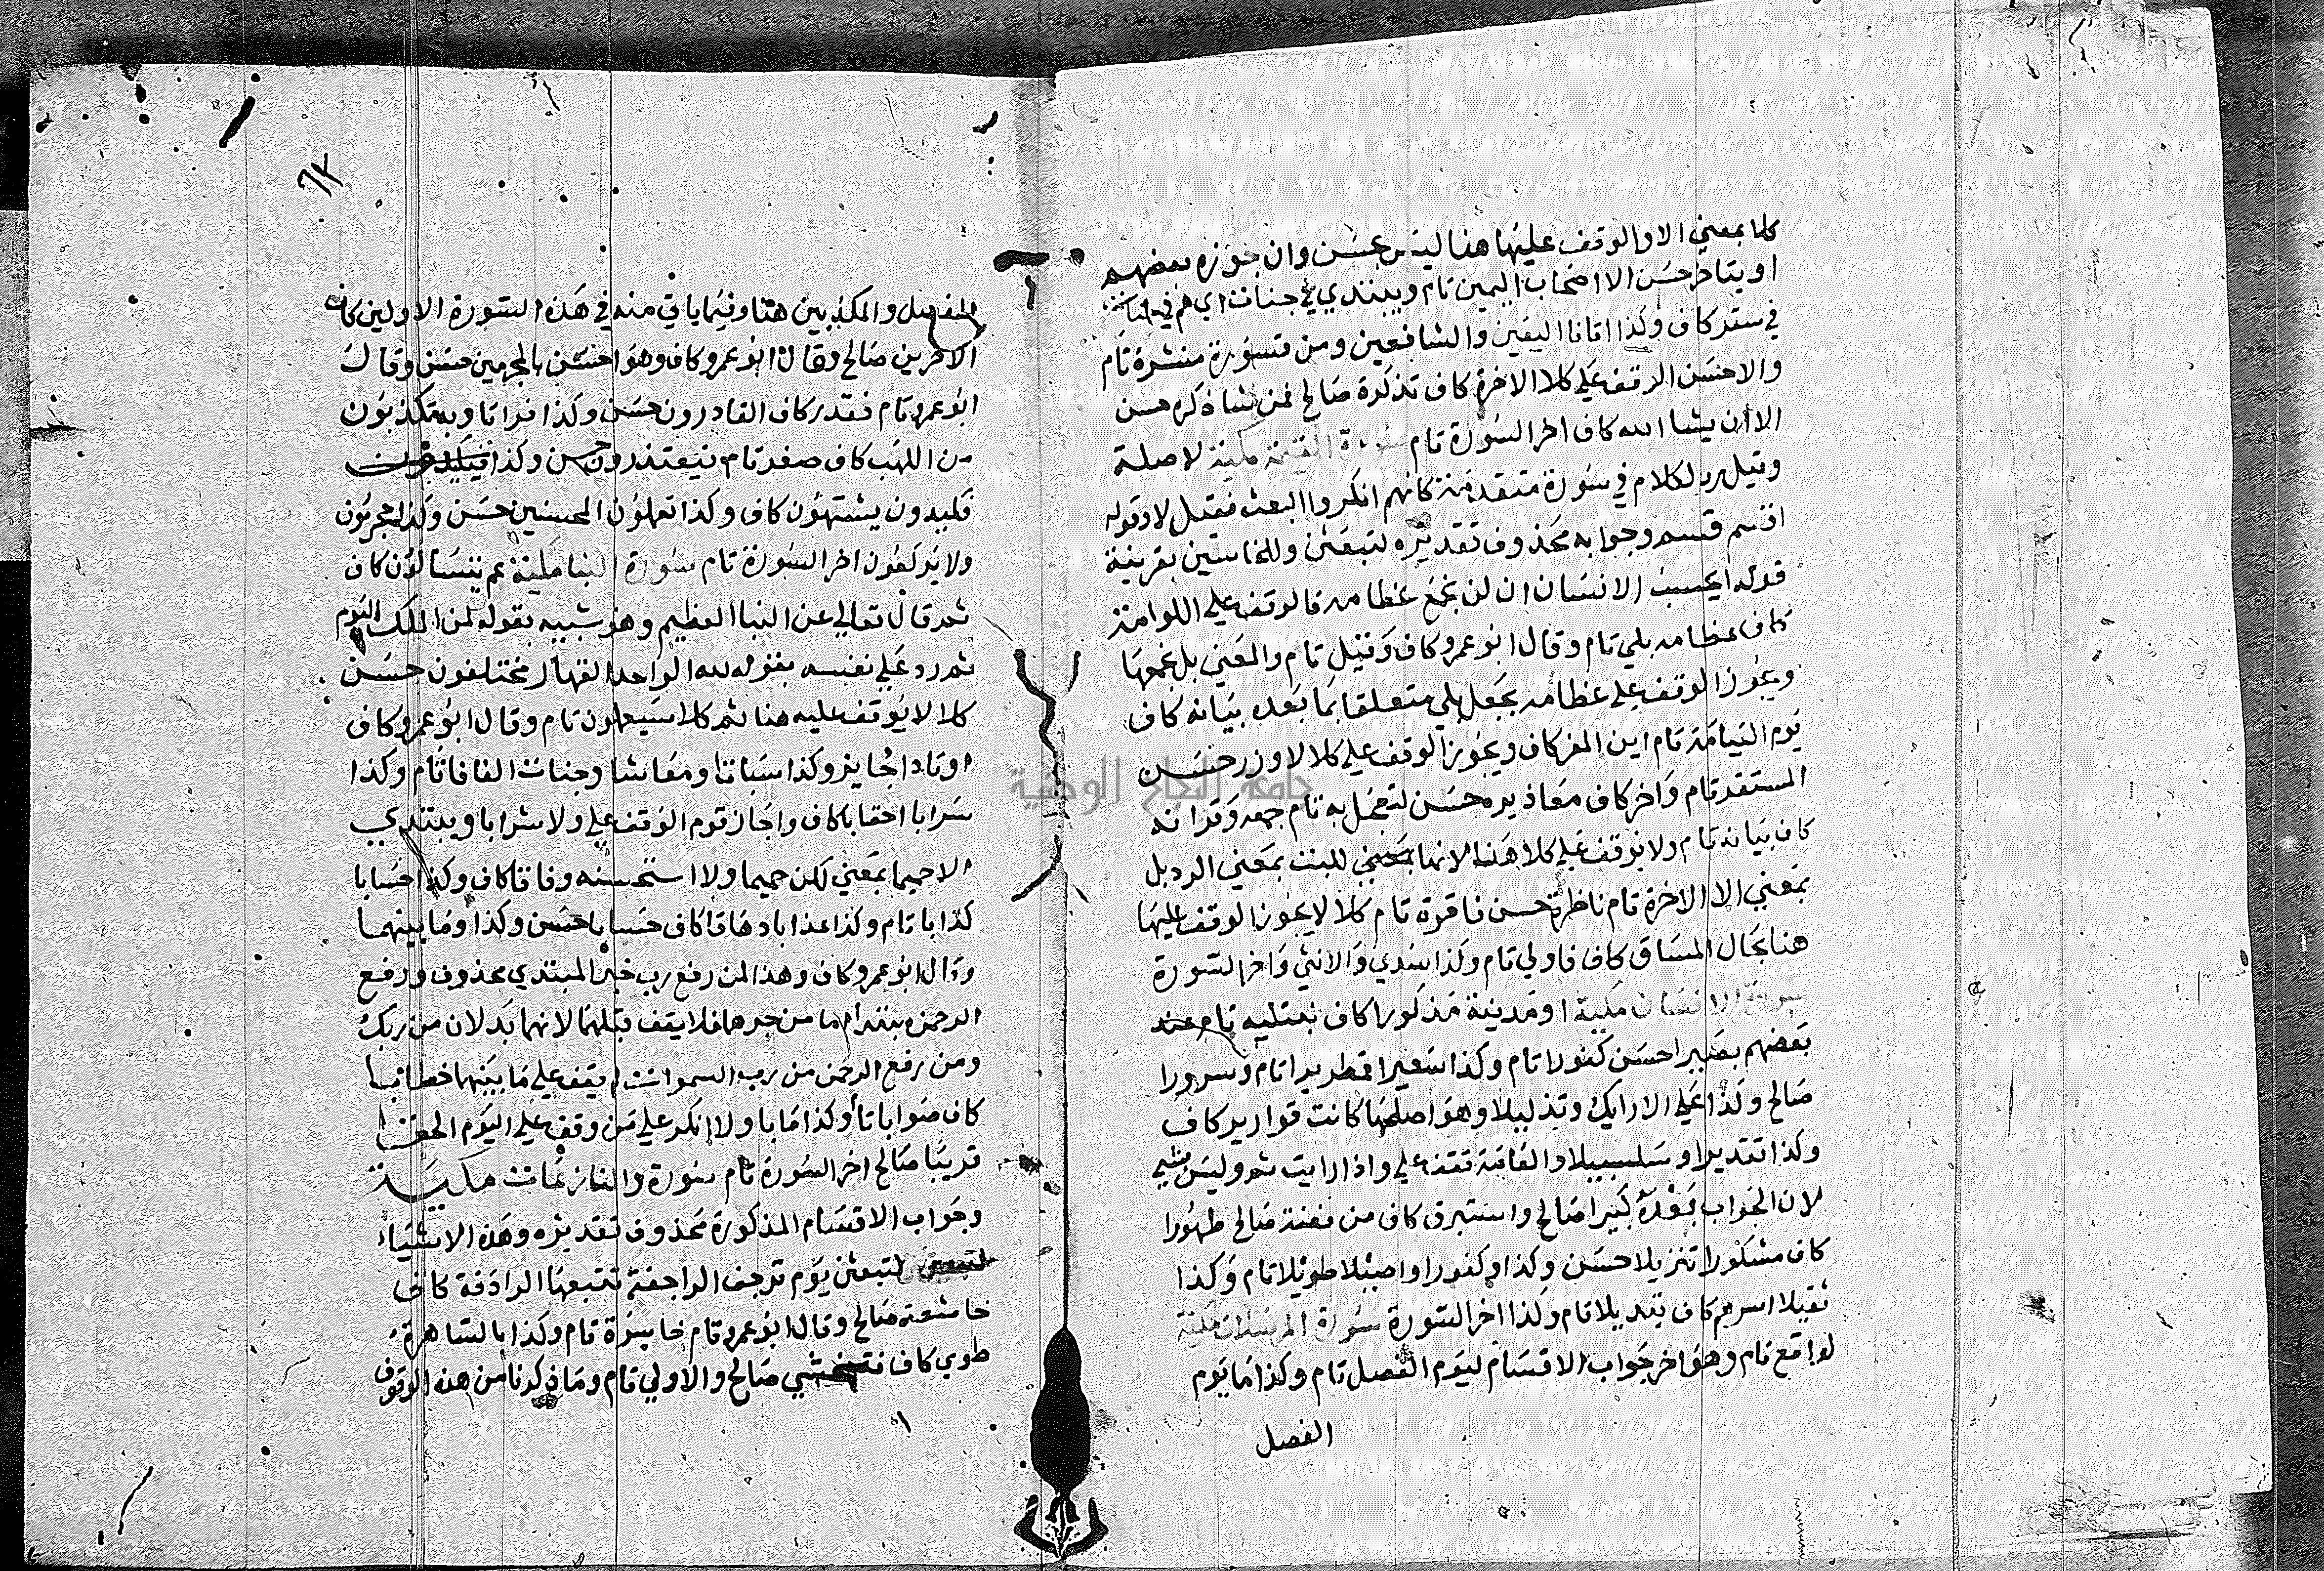 كلا بمعني الا والوقف عليها هنا ليس بحسن وان جوزه بعضهم
او يتاخر حسن الا اصحاب اليمين تام ويبتدي في جنات اي هم في جنات
في سقر كاف وكذا اتانا اليقين والشافعين ومن قسورة منشرة تام
والاحسن الوقف علي كلا الاخرة كاف تذكرة صالح فمن شا ذكره حسن
الا ان يشا الله كاف اخر السورة تام سورة القيمة مكية لا صلة
وقيل رد لكلام في سورة متقدمة كانهم انكروا البعث فقيل لا وقوله
اقسم قسم وجوابه محذوف تقديره لتبعثن وللحاسبين بقرينة
قوله ايحسب الانسان ان لن نجمع عظامه فالوقف علي اللوامة
كاف عظامه بلي تام وقال ابو عمرو كاف وقيل تام والمعني بل نجمعها
ويجوز الوقف علي عظامه بجعل بلي متعلقا بما بعده بنانه كاف
يوم القيامة تام اين المفر كاف ويجوز الوقف علي كلا لا وزر حسن
المستقر تام واخر كاف معاذيره حسن لتعجل به تام جمعه وقرانه
كاف بيانه تام ولا يوقف علي كلا هذه لانها بمعني للبنت بمعني الرد بل
بمعني الا الاخرة تام ناظرة حسن فاقرة تام كلا لا يجوز الوقف عليها
هنا بحال المساق كاف فاولي تام وكذا سدي والانثي واخر السورة
سورة الانسان مكية او مدنية مذكورا كاف نبتليه تام عند
بعضهم بصيرا حسن كفورا تام وكذا سعيرا قمطريرا تام وسرورا
صالح وكذا علي الارايك وتذليلا وهو اصلحها كانت قوارير كاف
وكذا تقديرا وسلسبيلا والغاقبة تقف علي واذا رايت ثم وليس بشي
لان الجواب بعده كبيرا صالح واستبرق كاف من فضة صالح طهورا
كاف مشكورا تنزيلا حسن وكذا وكفورا واصيلا طويلا تام وكذا
ثقيلا اسرهم كاف تبديلا تام وكذا اخر السورة سورة المرسلات مكية
لواقع تام وهو اخر جواب الاقسام ليوم الفصل تام وكذا ما يوم
الفصل
٦٣
الفصل والمكذبين هنا وفيما ياتي منه في هذه السورة الاولين كاف
الاخرين صالح وقال ابو عمرو كاف وهو احسن بالمجرمين حسن وقال
ابو عمرو تام فقدر كاف القادرون حسن وكذا فراتا وبه تكذبون
من اللهب كاف صفر تام فيعتذرون حسن وكذا
فكيدون يشتهون كاف وكذا تعملون المحسنين حسن وكذا مجرمون
ولا يركعون اخر السورة تام سورة النبا مكية عم يتسالون كاف
ثم قال تعالي عن النبا العظيم وهو شبيه بقوله لمن الملك اليوم
ثم رد علي نفسه بقوله لله الواحد القهار مختلفون حسن
كلا لا يوقف عليه هنا ثم كلا سيعلمون تام وقال ابو عمرو كاف
اوتادا جايز وكذا سباتا ومعاشا وجنات الفافا تام وكذا
سرابا احقابا كاف واجاز قوم الوقف علي ولا شرابا ويبتدي
الا حميما بمعني لكن حميما ولا استحسنه وفاقا كاف وكذا حسابا
كذابا تام وكذا عذابا دهاقا كاف حسابا حسن وكذا وما بينهما
وقال ابو عمرو كاف وهذا لمن رفع رب خبر المبتدي محذوف ورفع
الرحمن مبتدا واما من جرهما فلا يقف قبلهما لانهما بدلان من ربك
ومن رفع الرحمن من رب السموات لم يقف علي ما بينهما خطابا
كاف صوابا تا وكذا مابا ولا انكر علي من وقف علي اليوم الحق
قريبا صالح اخر السورة تام سورة والنازعات مكية
وجواب الاقسام المذكورة محذوف تقديره وهذه الاشياء
لتبعثن يوم ترجف الراجفة تتبعها الرادفة كاف
خاشعة صالح وقال ابو عمرو تام خاسرة تام وكذا بالساهرة
طوي كاف فتخشي صالح والاولي تام وما ذكرنا من هذه الوقوف
جامعة النجاح الوطنية